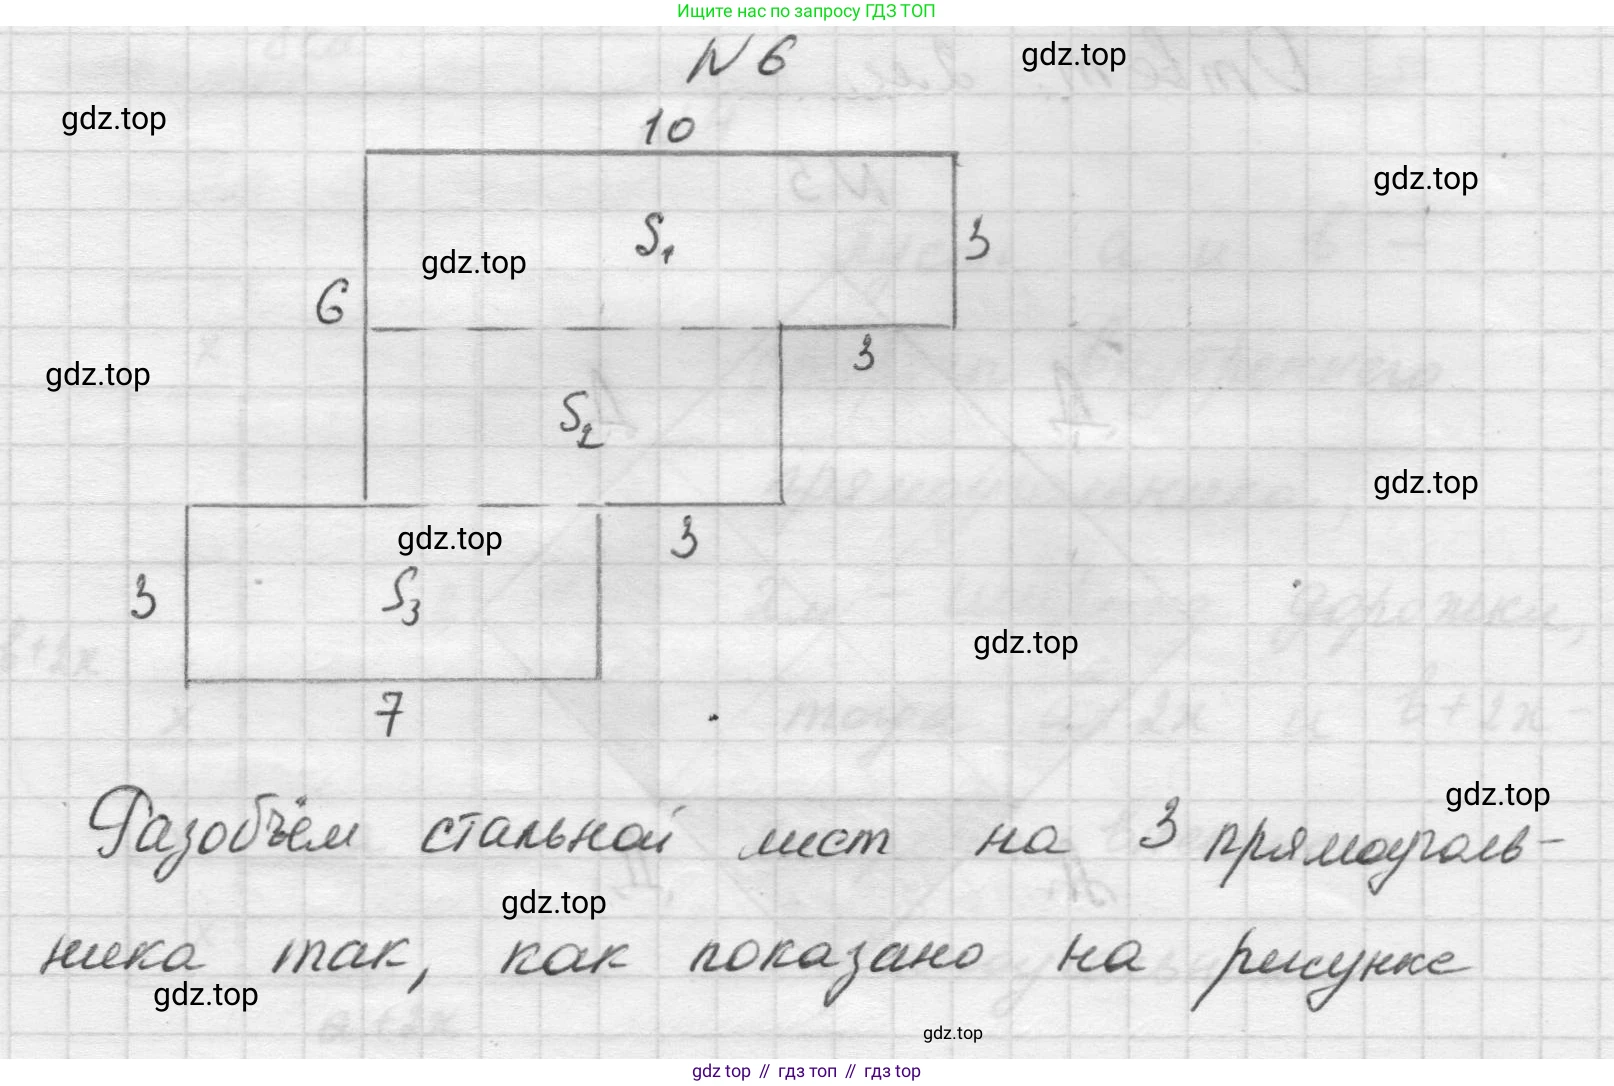 Ищите нас по запросу ГДЗ ТОП
N 6
gdz.top
gdz.top
10
gdz.top
S1
3
gdz.top
6
3
gdz.top
S2
gdz.top
3
gdz.top
3
S3
gdz.top
7
gdz.top
Разобъём стальной лист на 3 прямоуголь-
gdz.top
ника так, как показано на рисунке
gdz.top
gdz.top
gdz.top // гдз топ // гдз top